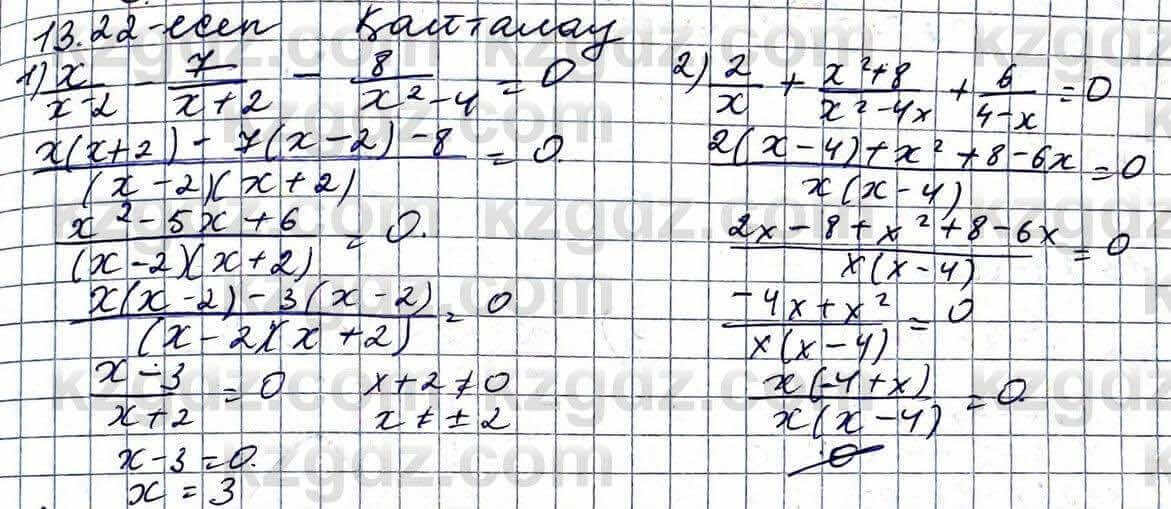 13.22-есеп Қайталау
1) x/(x-2) - 7/(x+2) - 8/(x²-4) = 0
(x(x+2) - 7(x-2) - 8)/((x-2)(x+2)) = 0.
(x²-5x+6)/((x-2)(x+2)) = 0.
(x(x-2) - 3(x-2))/((x-2)(x+2)) = 0
(x-3)/(x+2) = 0 x+2≠0
x ≠ ± 2
x-3=0.
x = 3
2) 2/x + (x²+8)/(x²-4x) + 6/(4-x) = 0
(2(x-4)+x²+8-6x)/(x(x-4)) = 0
(2x-8+x²+8-6x)/(x(x-4)) = 0
(-4x+x²)/(x(x-4)) = 0
(x(-4+x))/(x(x-4)) = 0.
Ø
kzgdz.com